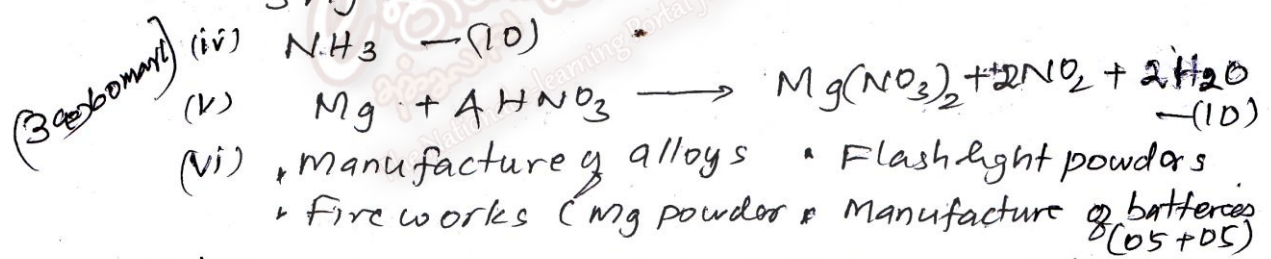 (iv) NH3 — (10)
(v) Mg + 4HNO₃ ⟶ Mg(NO₃)₂ + 2NO₂ + 2H2O
— (10)
(vi) • Manufacture of alloys • Flash light powders
• Fire works (Mg powder • Manufacture of batteries
(05 + 05)
Learning Portal